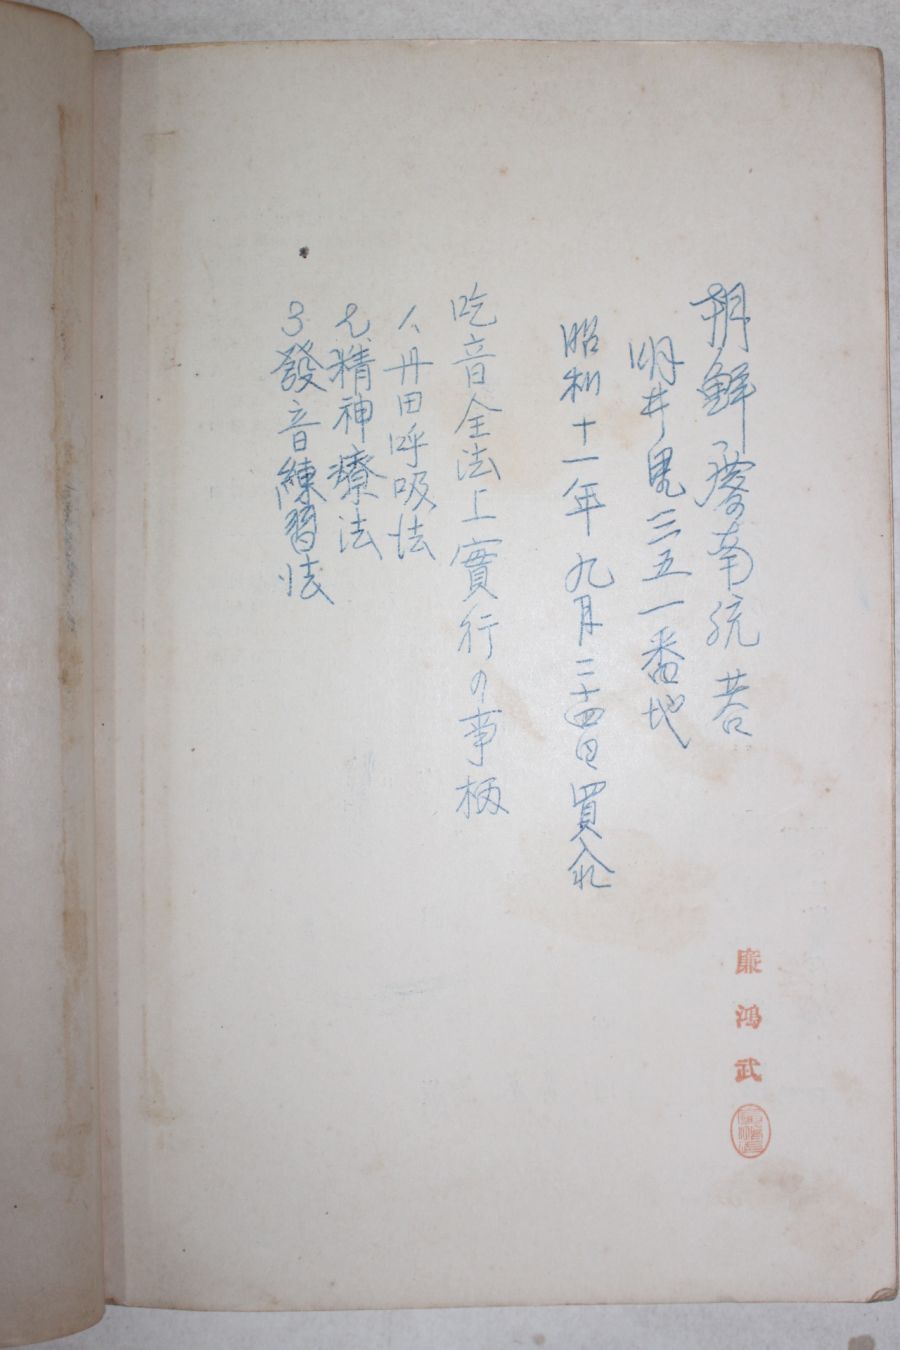 朝鮮慶南統營
明井里三五一番地
昭和十一年九月二十四日買入
吃音全法上實行の事柄
1、丹田呼吸法
2、精神療法
3、發音練習法
廉鴻武